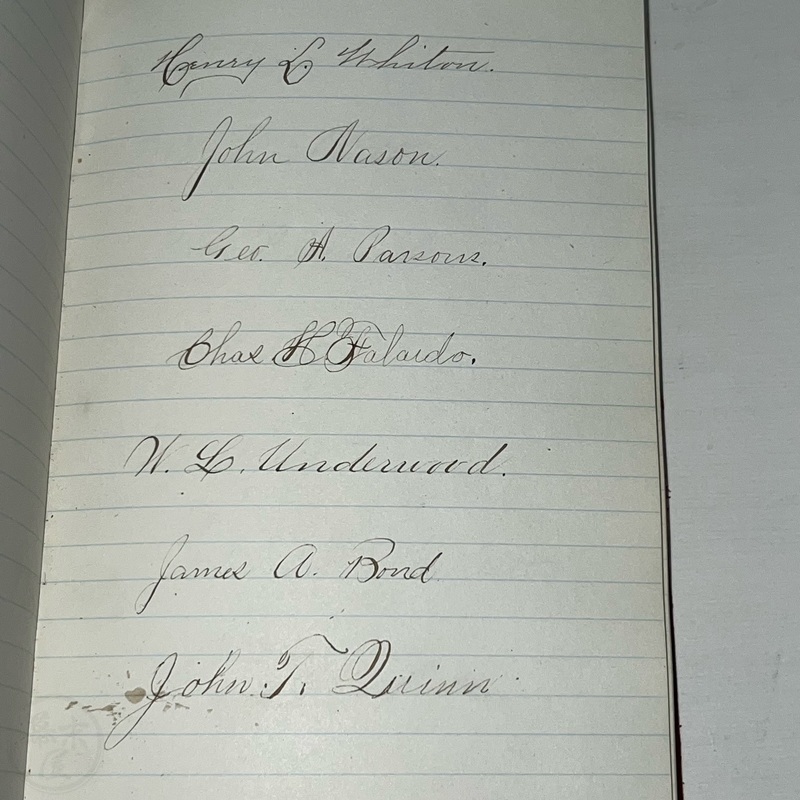 Henry L Whiton.
John Nason.
Geo. A. Parsons.
Chas H. Falardo.
W. L. Underwood.
James A. Bond
John. T. Quinn